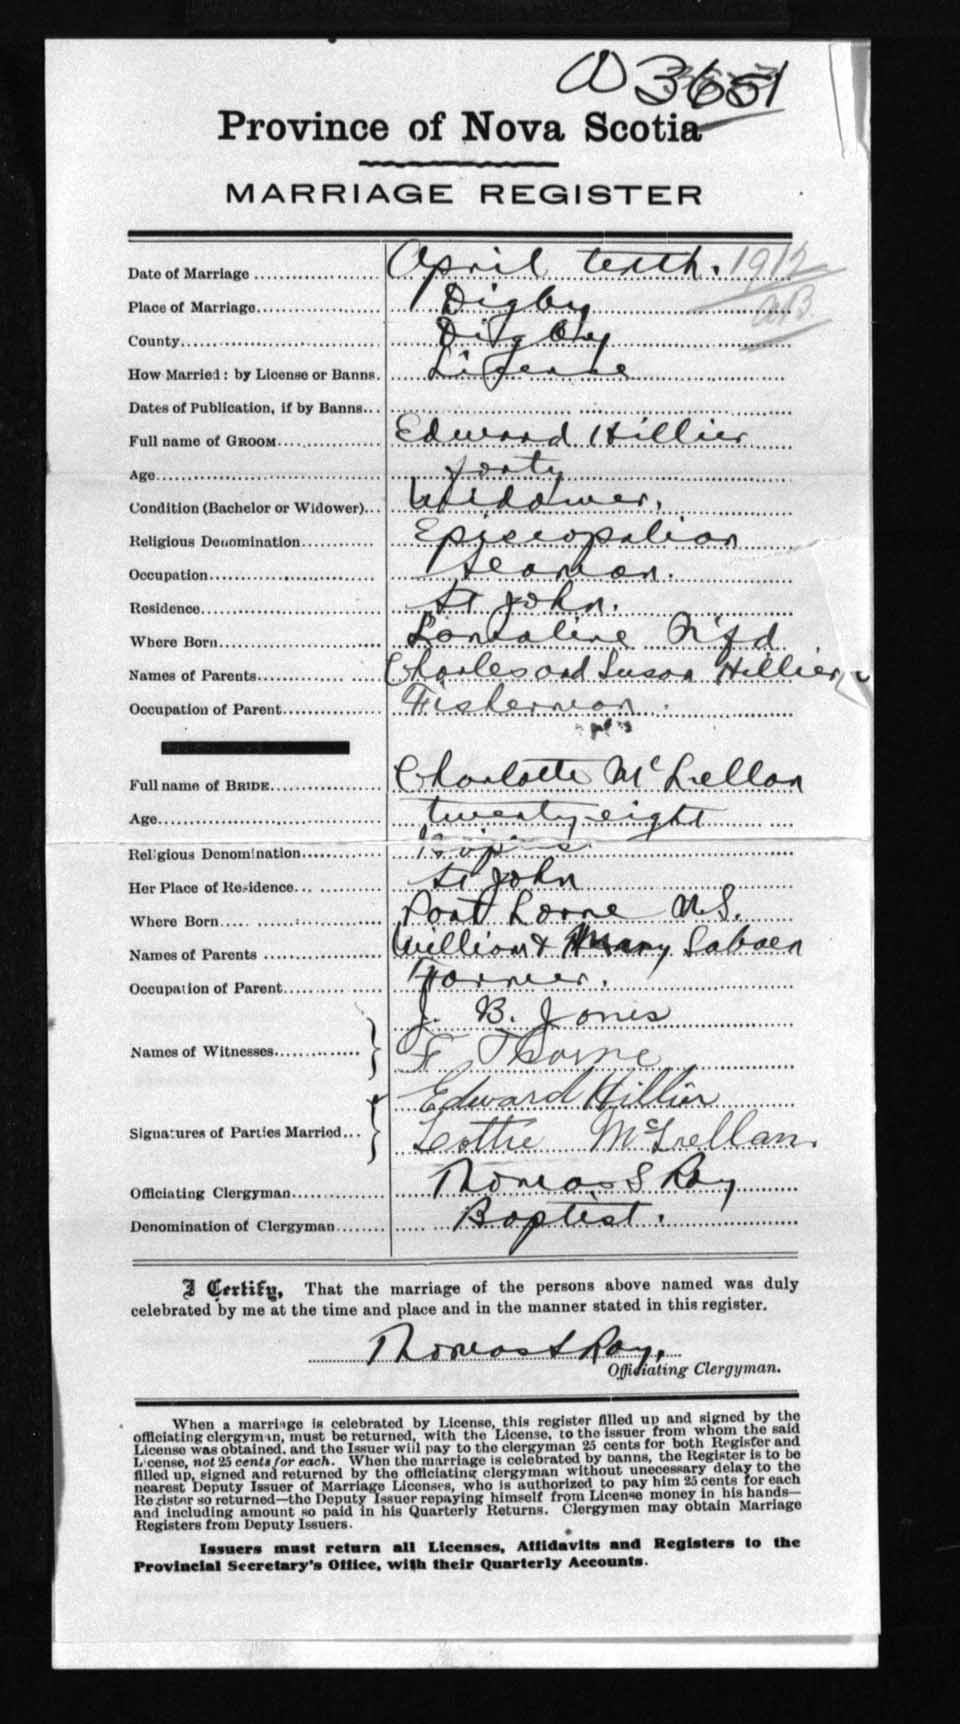 A 3651
Province of Nova Scotia
MARRIAGE REGISTER
Date of Marriage April tenth. 1912
Place of Marriage Digby
County Digby
How Married: by License or Banns. License
Dates of Publication, if by Banns
Full name of GROOM Edward Hillier
Age forty
Condition (Bachelor or Widower) Widower.
Religious Denomination Episcopalian
Occupation Seaman.
Residence St John.
Where Born Lamaline N'f'd
Names of Parents Charles and Susan Hillier
Occupation of Parent Fisherman.
Full name of BRIDE Charlotte McLellan
Age twenty eight
Religious Denomination
Her Place of Residence St John
Where Born Port Lorne N.S.
Names of Parents William & Mary Sabaen
Occupation of Parent Farmer.
Names of Witnesses J. B. Jones
F Thorne
Signatures of Parties Married Edward Hillier
Lottie McLellan.
Officiating Clergyman Thomas S Roy
Denomination of Clergyman Baptist.
I Certify, That the marriage of the persons above named was duly
celebrated by me at the time and place and in the manner stated in this register.
Thomas S Roy,
Officiating Clergyman.
When a marriage is celebrated by License, this register filled up and signed by the
officiating clergyman, must be returned, with the License, to the issuer from whom the said
License was obtained, and the Issuer will pay to the clergyman 25 cents for both Register and
License, not 25 cents for each. When the marriage is celebrated by banns, the Register is to be
filled up, signed and returned by the officiating clergyman without unnecessary delay to the
nearest Deputy Issuer of Marriage Licenses, who is authorized to pay him 25 cents for each
Register so returned—the Deputy Issuer repaying himself from License money in his hands—
and including amount so paid in his Quarterly Returns. Clergymen may obtain Marriage
Registers from Deputy Issuers.
Issuers must return all Licenses, Affidavits and Registers to the
Provincial Secretary's Office, with their Quarterly Accounts.